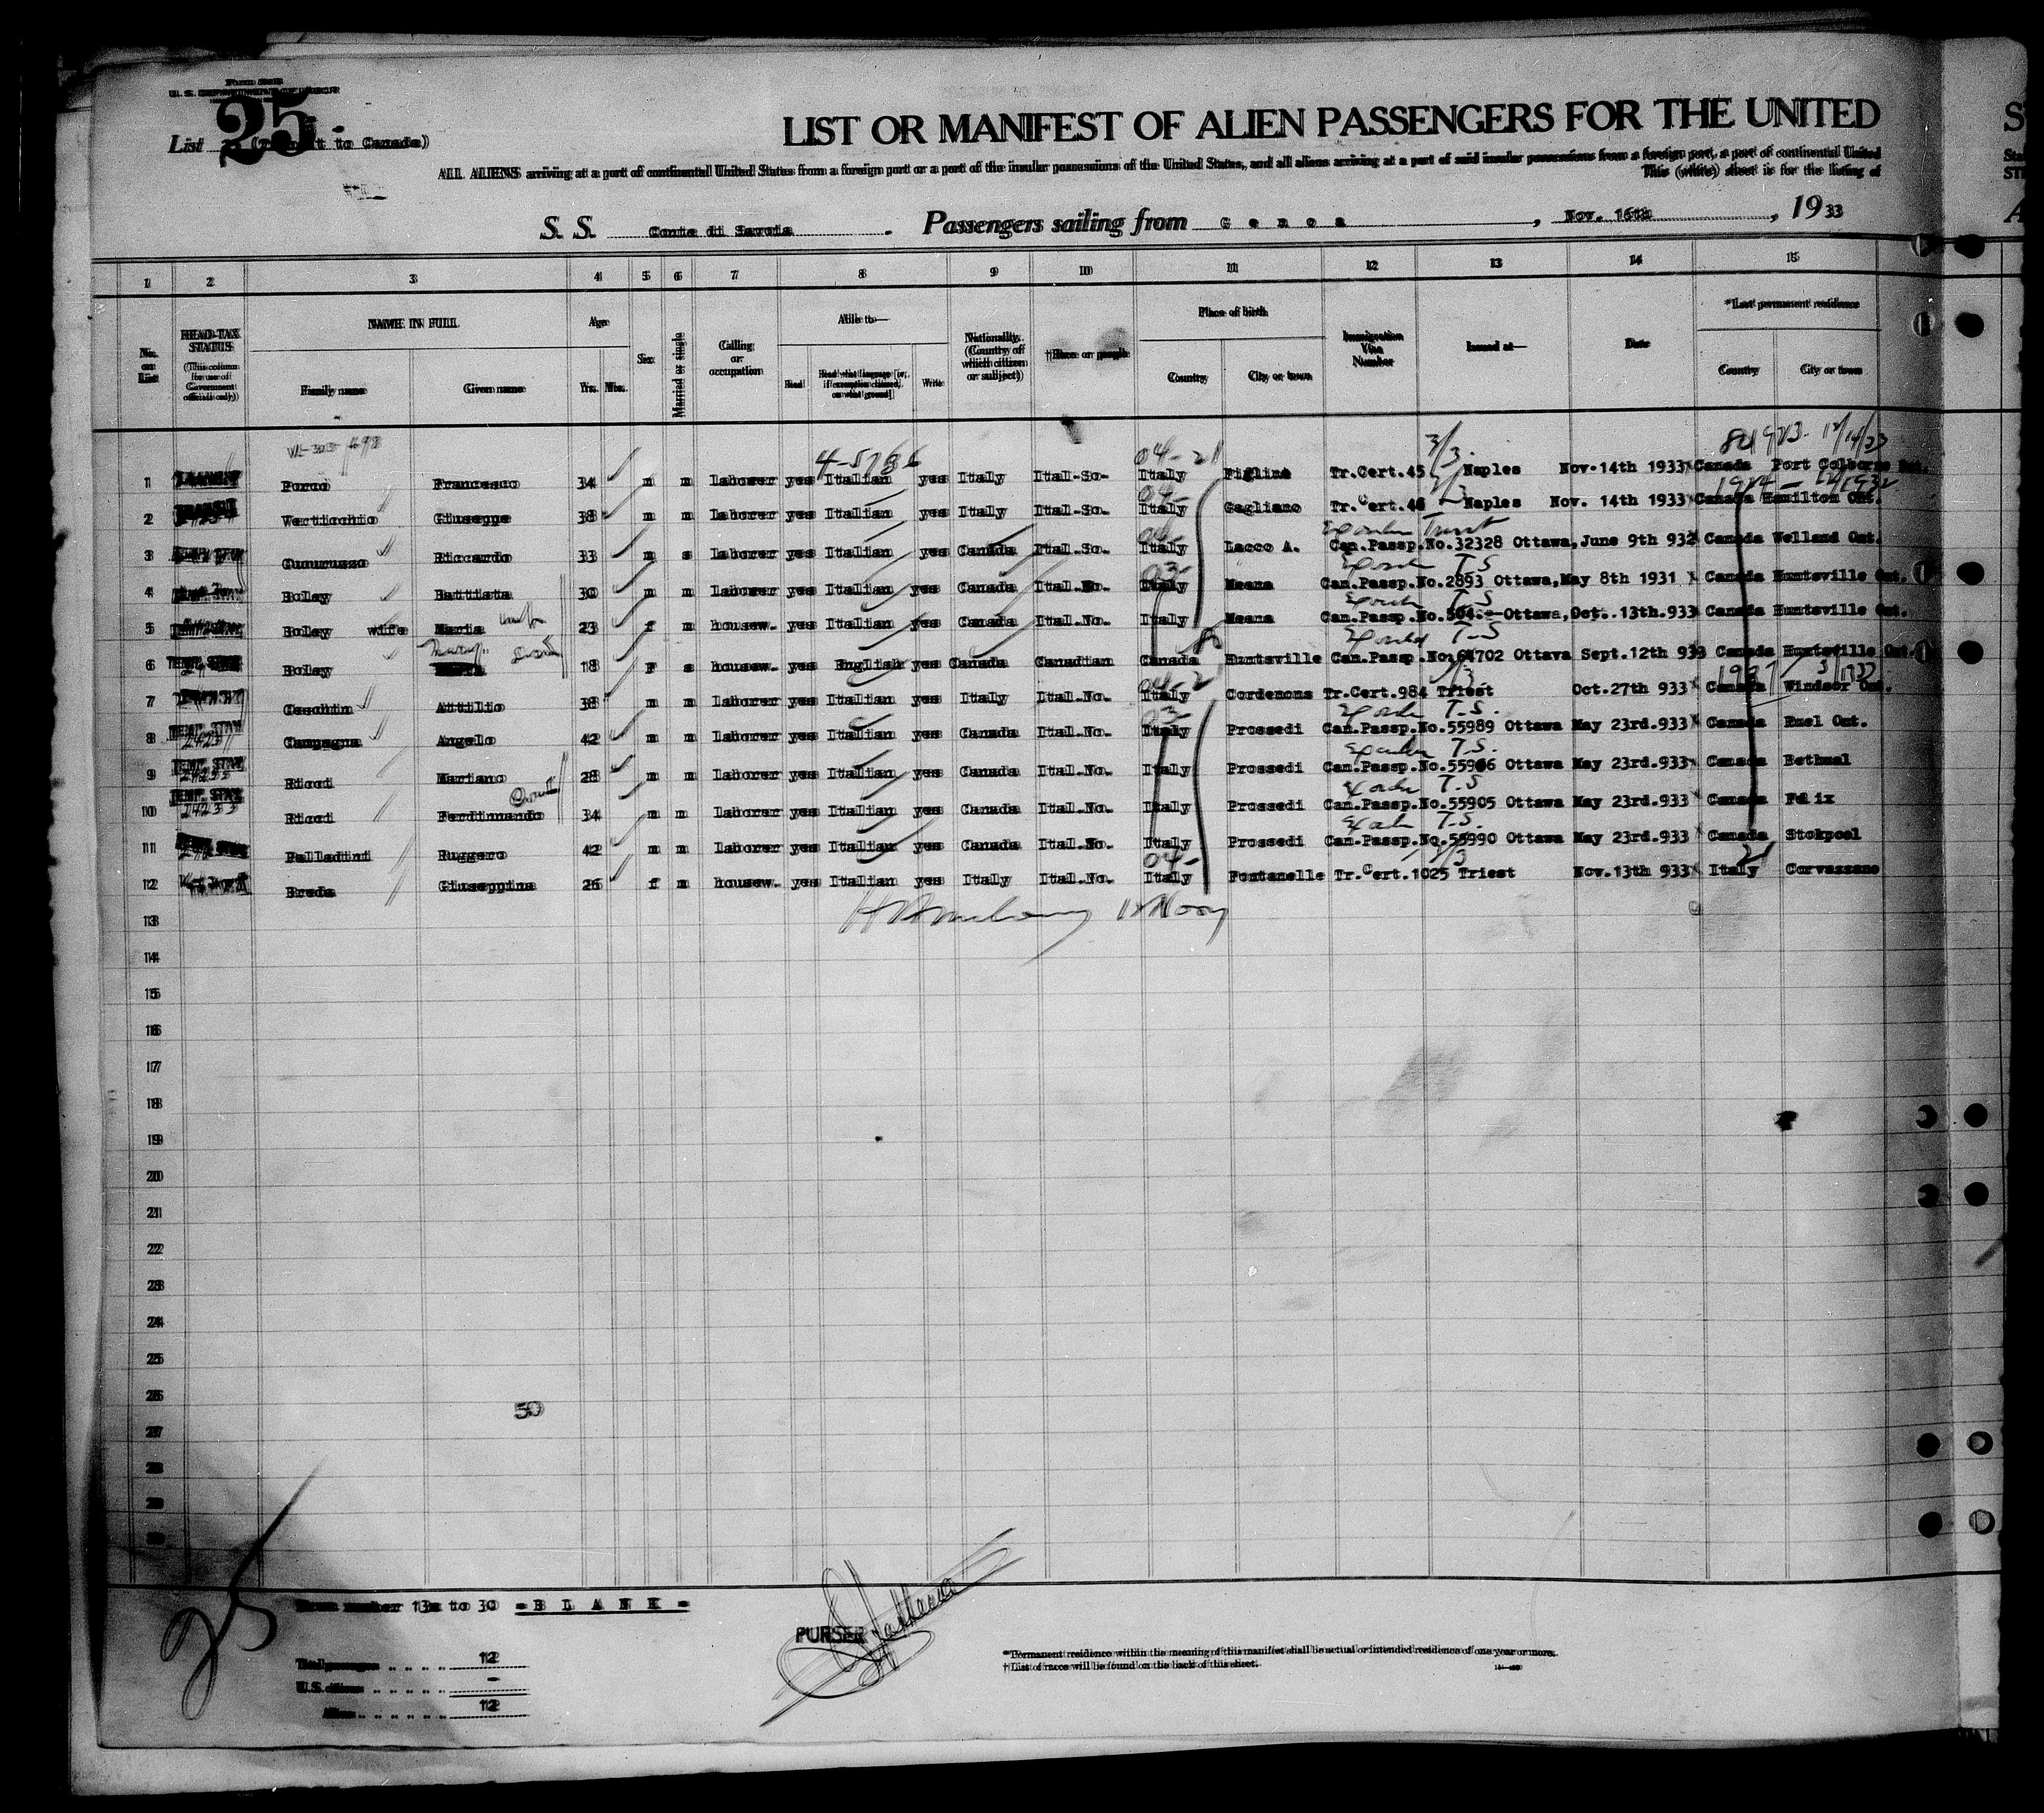 Form 500B
U. S. DEPARTMENT OF LABOR
25
List (Transit to Canada)
LIST OR MANIFEST OF ALIEN PASSENGERS FOR THE UNITED
ALL ALIENS arriving at a port of continental United States from a foreign port or a port of the insular possessions of the United States, and all aliens arriving at a port of said insular possessions from a foreign port, a port of continental United
This (white) sheet is for the listing of
S. S. Conte di Savoia . Passengers sailing from G e n o a , Nov. 16th , 1933
1 2 3 4 5 6 7 8 9 10 11 12 13 14 15
No. on List
HEAD-TAX STATUS (This column for use of Government officials only)
NAME IN FULL
Family name Given name
Age
Yrs. Mos.
Sex
Married or single
Calling or occupation
Able to—
Read Read what language [or, if exemption claimed, on what ground] Write
Nationality. (Country of which citizen or subject)
†Race or people
Place of birth
Country City or town
Immigration Visa Number
Issued at—
Date
*Last permanent residence
Country City or town
4-5786 04-21 3/3
1 Porco Francesco 34 m m laborer yes Italian yes Italy Ital.So. Italy Figline Tr.Cert.45 Naples Nov.14th 1933 Canada Port Colborne Ont.
2 Verticchio Giuseppe 38 m m laborer yes Italian yes Italy Ital.So. Italy Gagliano Tr.Cert.46 Naples Nov. 14th 1933 Canada Hamilton Ont.
3 Cucuruzzo Riccardo 33 m s laborer yes Italian yes Canada Ital.So. Italy Lacco A. Can.Passp.No.32328 Ottawa,June 9th 932 Canada Welland Ont.
4 Boley Battista 30 m m laborer yes Italian yes Canada Ital.No. Italy Meana Can.Passp.No.2893 Ottawa,May 8th 1931 Canada Huntsville Ont.
5 Boley wife Maria 23 f m housew. yes Italian yes Canada Ital.No. Italy Meana Can.Passp.No.504 Ottawa,Oct. 13th.933 Canada Huntsville Ont.
6 Boley Mary 18 F s housew. yes English yes Canada Canadian Canada Huntsville Can.Passp.No.64702 Ottawa Sept.12th 933 Canada Huntsville Ont.
7 Ceschin Attilio 38 m m laborer yes Italian yes Italy Ital.No. Italy Cordenons Tr.Cert.984 Triest Oct.27th 933 Canada Windsor Ont.
8 TEMP. STAY Campagna Angelo 42 m m laborer yes Italian yes Canada Ital.No. Italy Prossedi Can.Passp.No.55989 Ottawa May 23rd.933 Canada Ruel Ont.
9 TEMP. STAY Ricci Mariano 28 m m laborer yes Italian yes Canada Ital.No. Italy Prossedi Can.Passp.No.55906 Ottawa May 23rd.933 Canada Bethnal
10 TEMP. STAY Ricci Ferdinando 34 m m laborer yes Italian yes Canada Ital.No. Italy Prossedi Can.Passp.No.55905 Ottawa May 23rd.933 Canada Felix
11 Palladini Ruggero 42 m m laborer yes Italian yes Canada Ital.No. Italy Prossedi Can.Passp.No.55990 Ottawa May 23rd.933 Canada Stokpool
12 Breda Giuseppina 26 f m housew. yes Italian yes Italy Ital.No. Italy Fontanelle Tr.Cert.1025 Triest Nov.13th 933 Italy Corvassano
13
14
15
16
17
18
19
20
21
22
23
24
25
26
50
27
28
29
30
25
From number 13 to 30 -B L A N K-
PURSER
Total passengers 12
U.S. citizens -
Aliens 12
*Permanent residence within the meaning of this manifest shall be actual or intended residence of one year or more.
†List of races will be found on the back of this sheet.